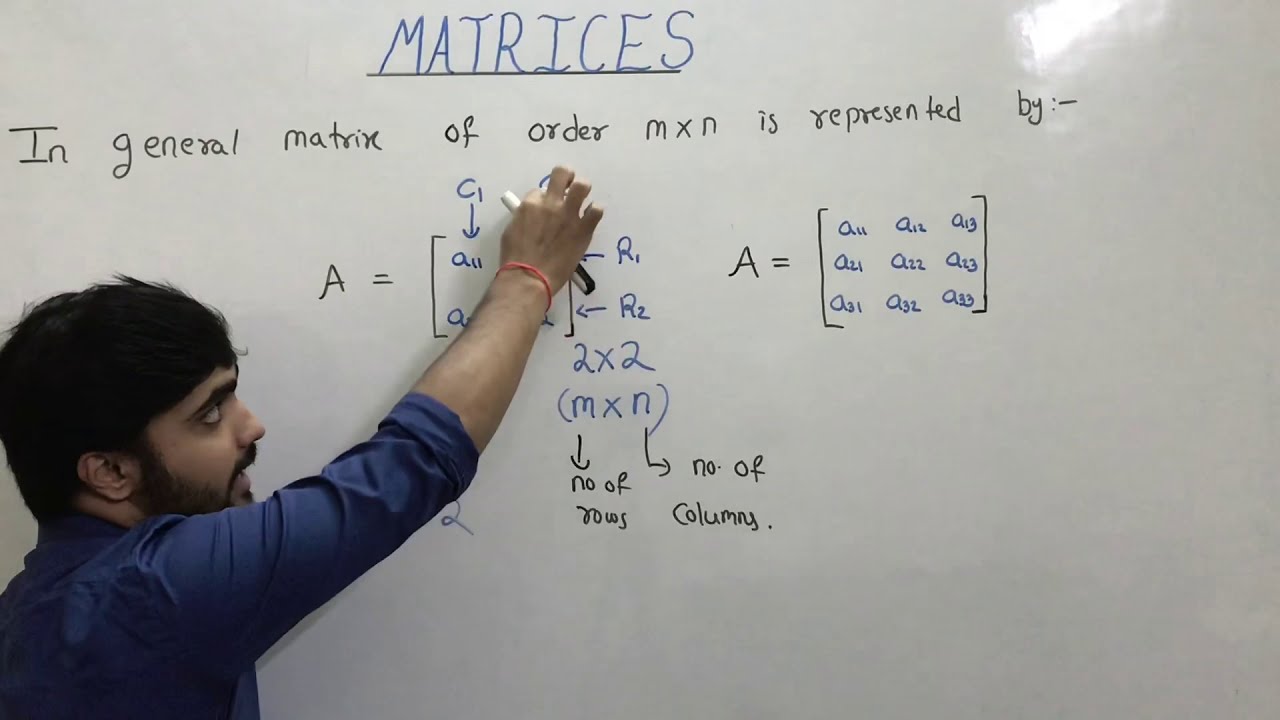 MATRICES
In general matrix of order m×n is represented by:-
C₁
A = [ a₁₁ ← R₁
← R₂ ]
2×2
(m×n)
↓ no of rows
↳ no. of columns.
2
A = [ a₁₁ a₁₂ a₁₃
a₂₁ a₂₂ a₂₃
a₃₁ a₃₂ a₃₃ ]